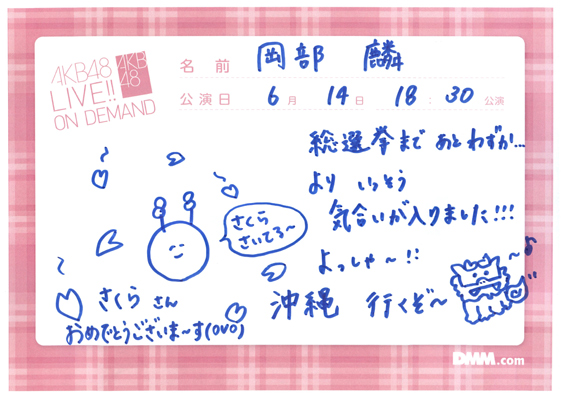 AKB48
LIVE!!
ON DEMAND
AKB
48
名前 岡部 麟
公演日 6月 14日 18:30公演
総選挙まで あとわずか...
より いっそう
気合いが入りました!!!
よっしゃ〜!!
沖縄 行くぞ〜
さくら
さいてる〜
さくら さん
おめでとうございま〜す(OVO)
DMM.com